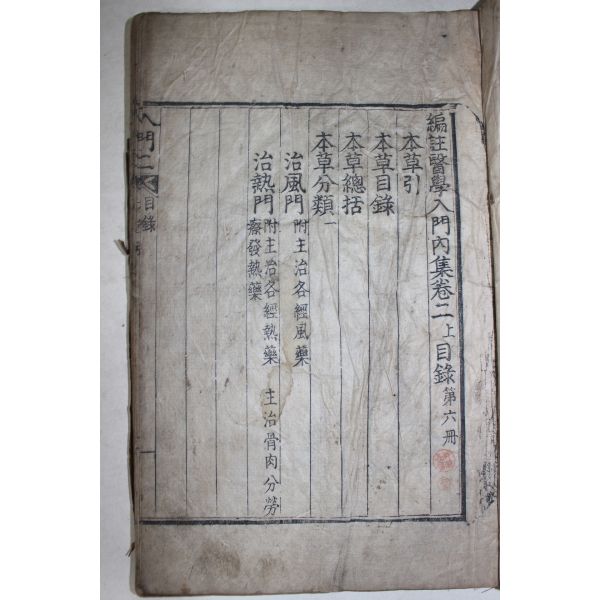 編註醫學入門內集卷二上目錄 第六冊
本草引
本草目錄
本草總括
本草分類一
治風門 附主治各經風藥
治熱門 附主治各經熱藥 主治骨肉分勞
瘵發熱藥
入門二 目錄